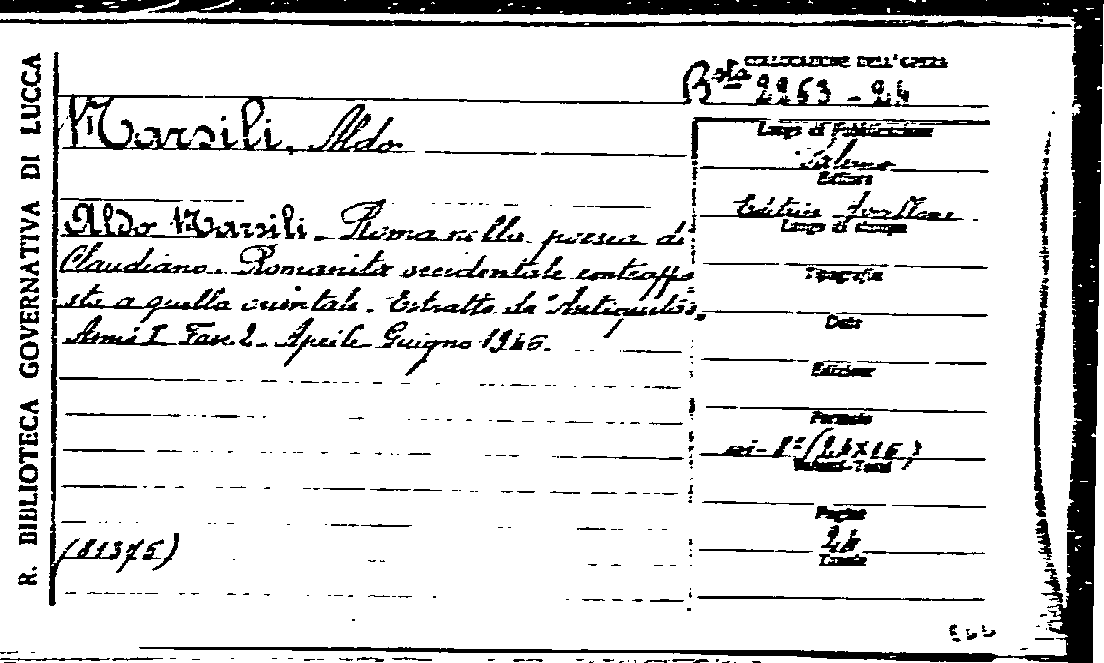 R. BIBLIOTECA GOVERNATIVA DI LUCCA
COLLOCAZIONE DELL'OPERA
Bsta 2263-24
Marsili, Aldo
Aldo Marsili - Roma nella poesia di
Claudiano. Romanità occidentale contrappo
sta a quella orientale. Estratto da "Antiquitas",
Anno I Fasc. 2 - Aprile Giugno 1946.
(81375)
Luogo di Pubblicazione
Salerno
Editore
Editrice
Luogo di stampa
Tipografia
Data
Edizione
Formato
in-8° (24x16)
Volumi-Tomi
Pagine
24
Tavole